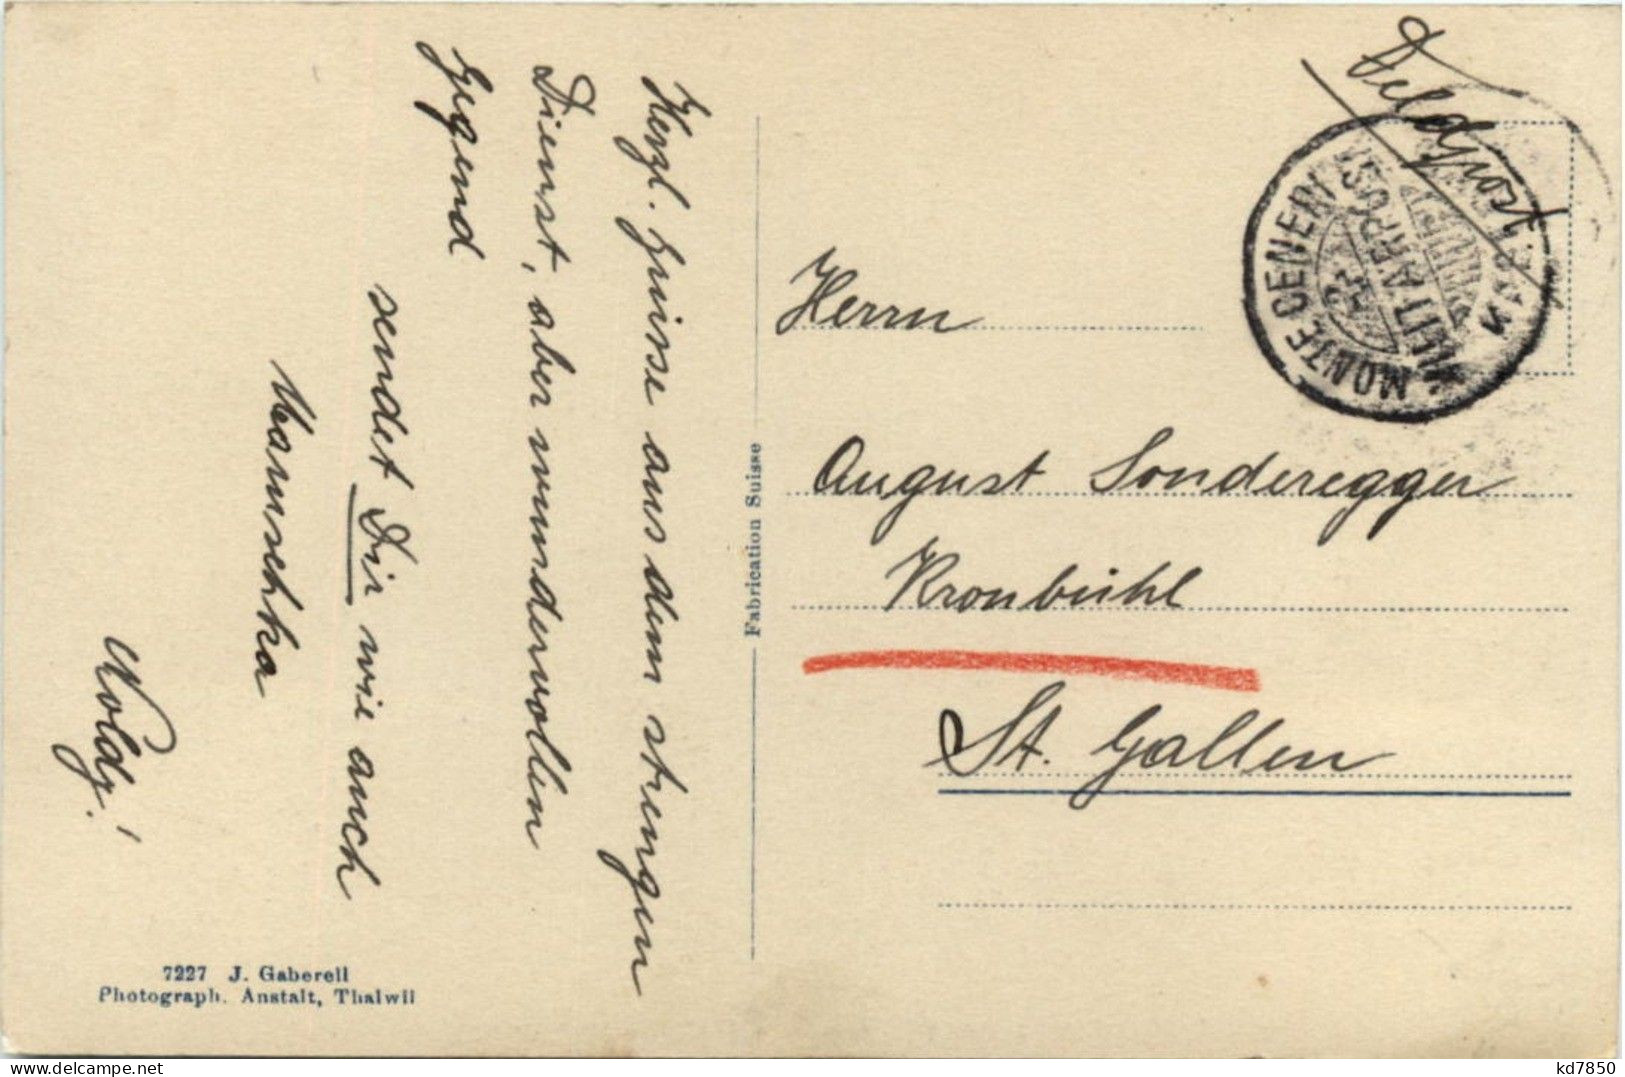 Herzl. Grüsse aus dem strengen
Dienst, aber wundervollen
Gegend
sendet Dir wie auch
Mamschka
Noldy!
7227 J. Gaberell
Photograph. Anstalt, Thalwil
Fabrication Suisse
Feldpost
MONTE CENERI
MILITÄRPOST
Herrn
August Sonderegger
Kronbühl
St. Gallen
kd7850